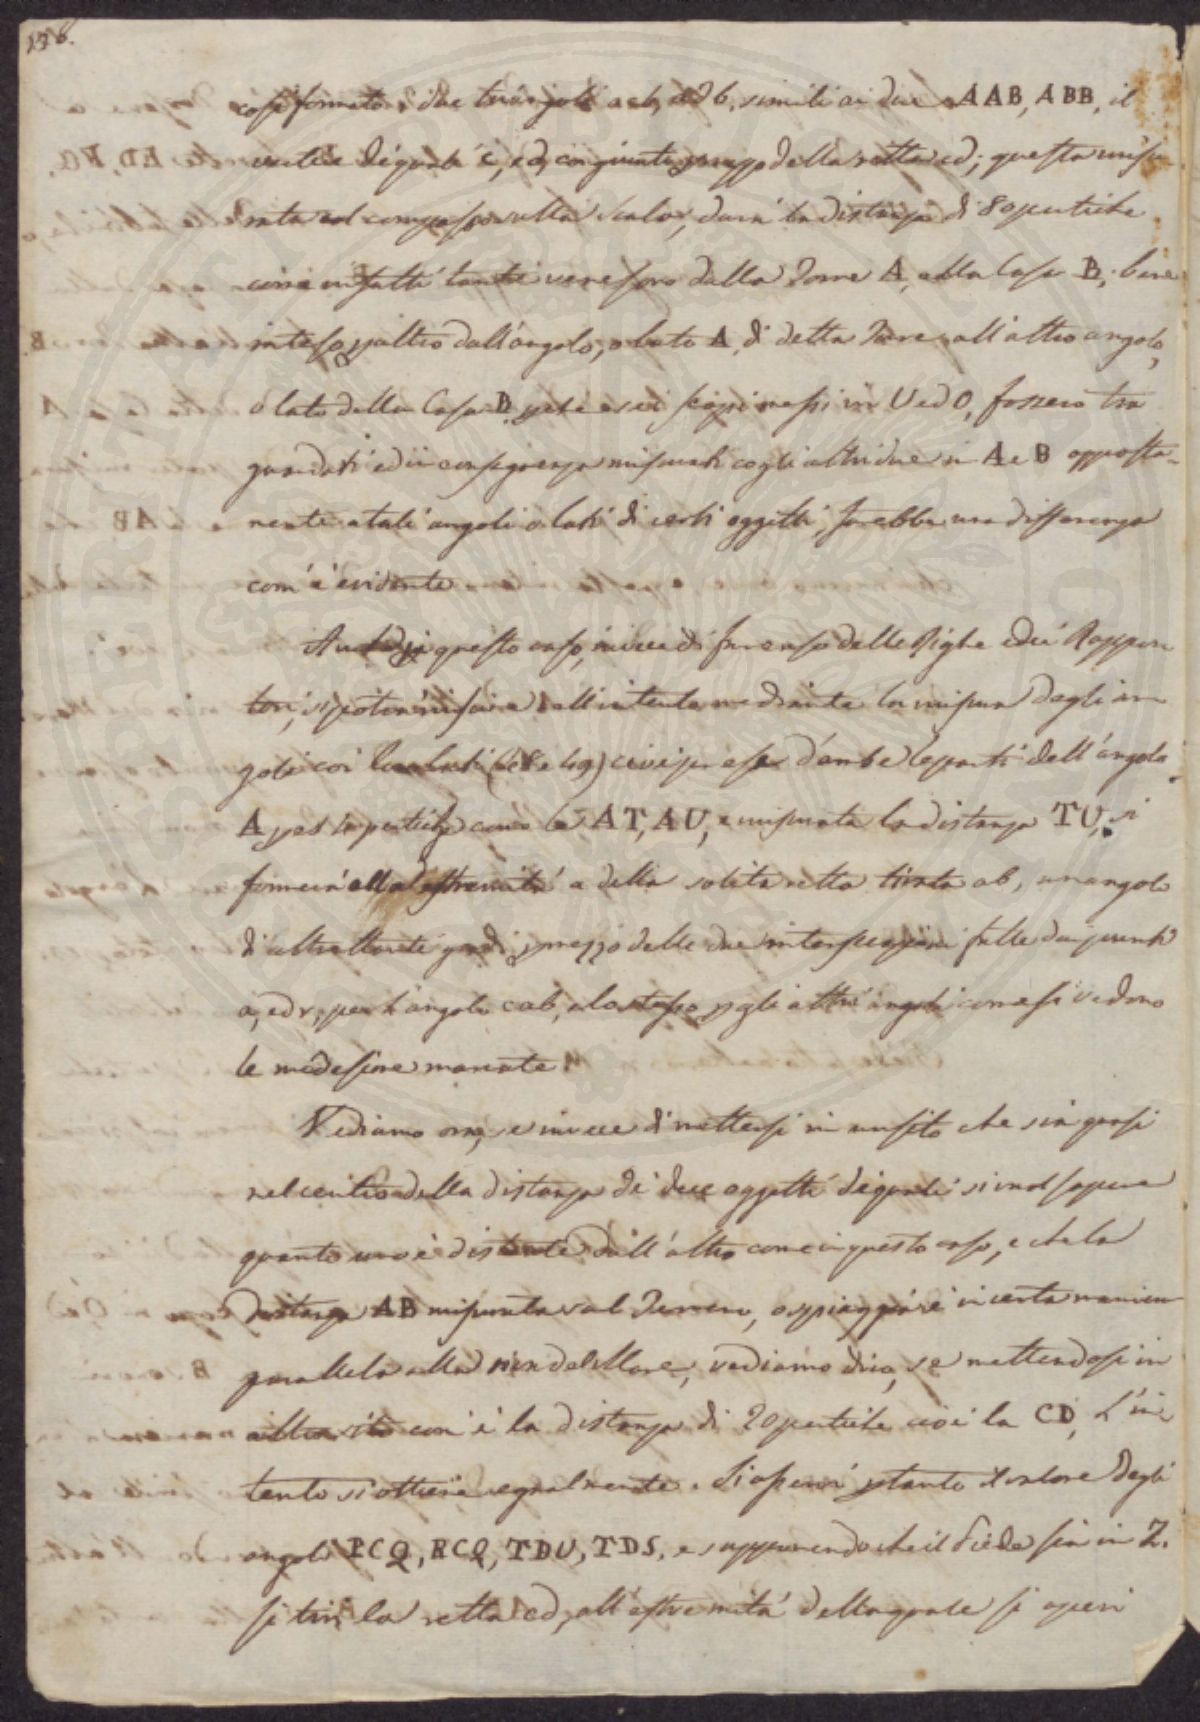 156.
così formato, i due triangoli acb, adb, simili ai due AAB, ABB, il
vertice de' quali è c, e d, congiunti mezzo della retta cd; questa misu
rata col compasso sulla Scala, darà la distanza di 80 pertiche
come infatti tante ve ne sono dalla Torre A, alla Casa B, bene
inteso altro dall'angolo, o lato A, di detta Torre, all'altro angolo,
o lato della Casa B, se i scopi messi in U ed O, fossero tra
guardati ed in conseguenza misurati cogli altri due in A e B opposta-
mente a tali angoli o lati di certi oggetti, sarebbe una differenza
com'è evidente.
Anche questo caso, invece di far uso delle Righe e de' Rappor
tori, si potrà all'intento mediante la misura degli an
goli coi (48 e 49) cioè prese d'ambe le parti dell'angolo
A pertiche come le AT, AU, e misurata la distanza TU, si
formerà all'estremità a della solita retta tirata ab, un angolo
di altrettanti gradi mezzo delle due intersecazioni fatte dai punti
a, ed r, per l'angolo cab, e lo stesso gli altri angoli come si vedono
le medesime marcate.
Vediamo ora, se invece di mettersi in un sito che sia quasi
nel centro della distanza di due oggetti de' quali si vuol sapere
quanto uno è distante dall'altro come in questo caso, e che la
distanza AB misurata sul Terreno, o spiaggia è in certa maniera
parallela alla riva del Mare, vediamo dico, se mettendosi in
altro sito com'è la distanza di 20 pertiche cioè la CD, l'in
tento si ottiene egualmente. Si osservi il valore degli
angoli PCQ, RCQ, TDU, TDS, e supponendo che il Piede sia in Z.
si tiri la retta cd, all'estremità della quale si operi